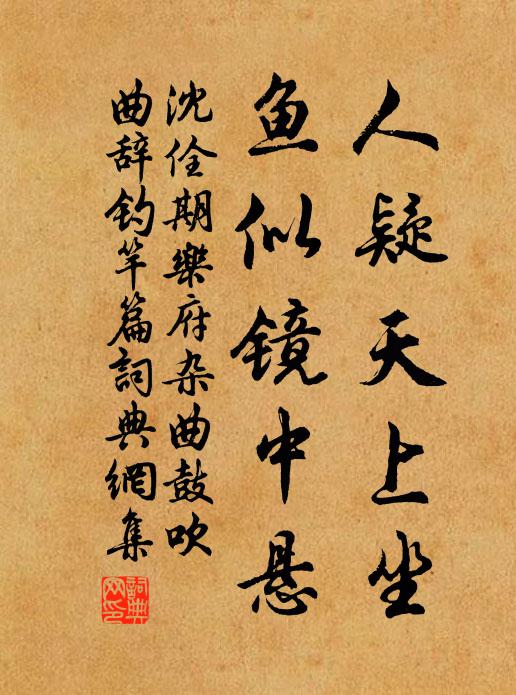 人疑天上坐
鱼似镜中悬
沈佺期樂府杂曲鼓吹
曲辞钓竿篇詞典網集
詞典網印